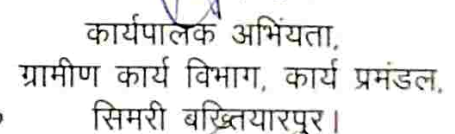 कार्यपालक अभिंयता,
ग्रामीण कार्य विभाग, कार्य प्रमंडल,
सिमरी बख्तियारपुर।